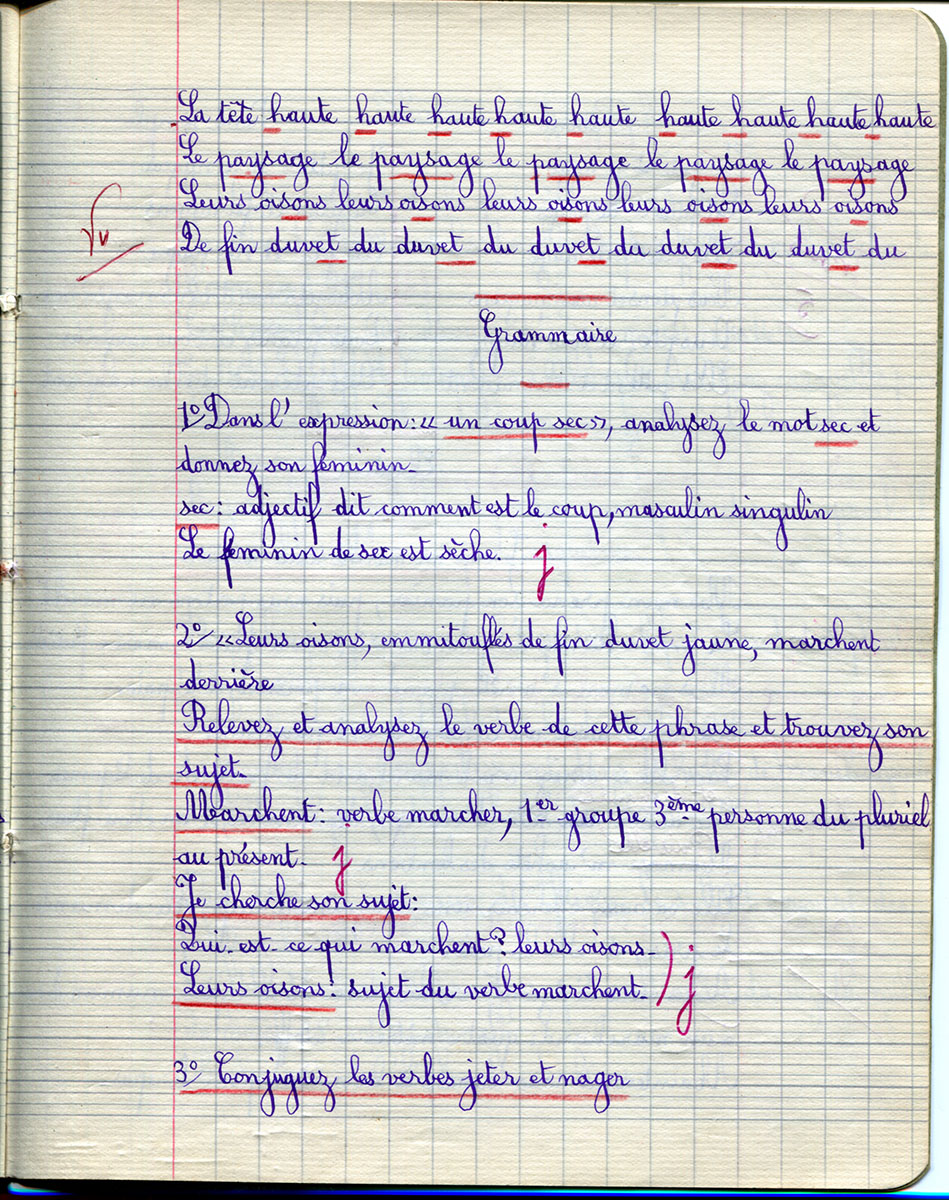 La tête haute haute haute haute haute haute haute haute haute
Le paysage le paysage le paysage le paysage le paysage
Leurs oisons leurs oisons leurs oisons leurs oisons leurs oisons
Vu
De fin duvet du duvet du duvet du duvet du duvet du
Grammaire
1º Dans l'expression: « un coup sec », analysez le mot sec et
donnez son féminin.
sec: adjectif dit comment est le coup, masculin singulin
Le féminin de sec est sèche. j
2º/ « Leurs oisons, emmitouflés de fin duvet jaune, marchent
derrière
Relevez et analysez le verbe de cette phrase et trouvez son
sujet.
Marchent: verbe marcher, 1er groupe 3ème personne du pluriel
au présent. j
Je cherche son sujet:
Qui-est-ce qui marchent? leurs oisons.
Leurs oisons: sujet du verbe marchent. ) j
3º Conjuguez les verbes jeter et nager